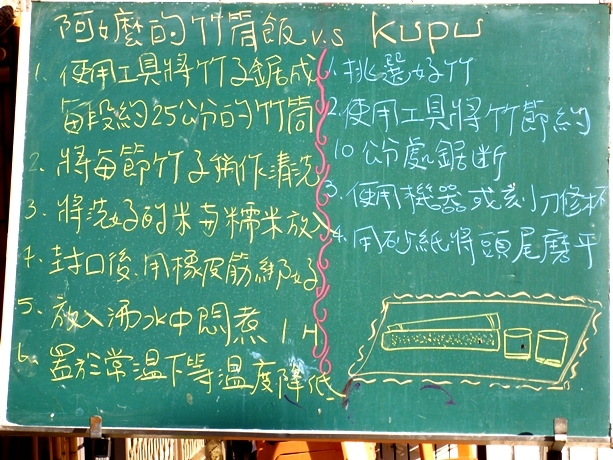 阿嬤的竹筒飯 v.s Kupu
1. 使用工具將竹子鋸成
每段約25公分的竹筒
2. 將每節竹子稍作清洗
3. 將洗好的米與糯米放入
4. 封口後用橡皮筋綁好
5. 放入滾水中悶煮 1 H
6. 置於常溫下等溫度降低
1. 挑選好竹
2. 使用工具將竹節約
10公分處鋸斷
3. 使用機器或刻刀修杯
4. 用砂紙將頭尾磨平